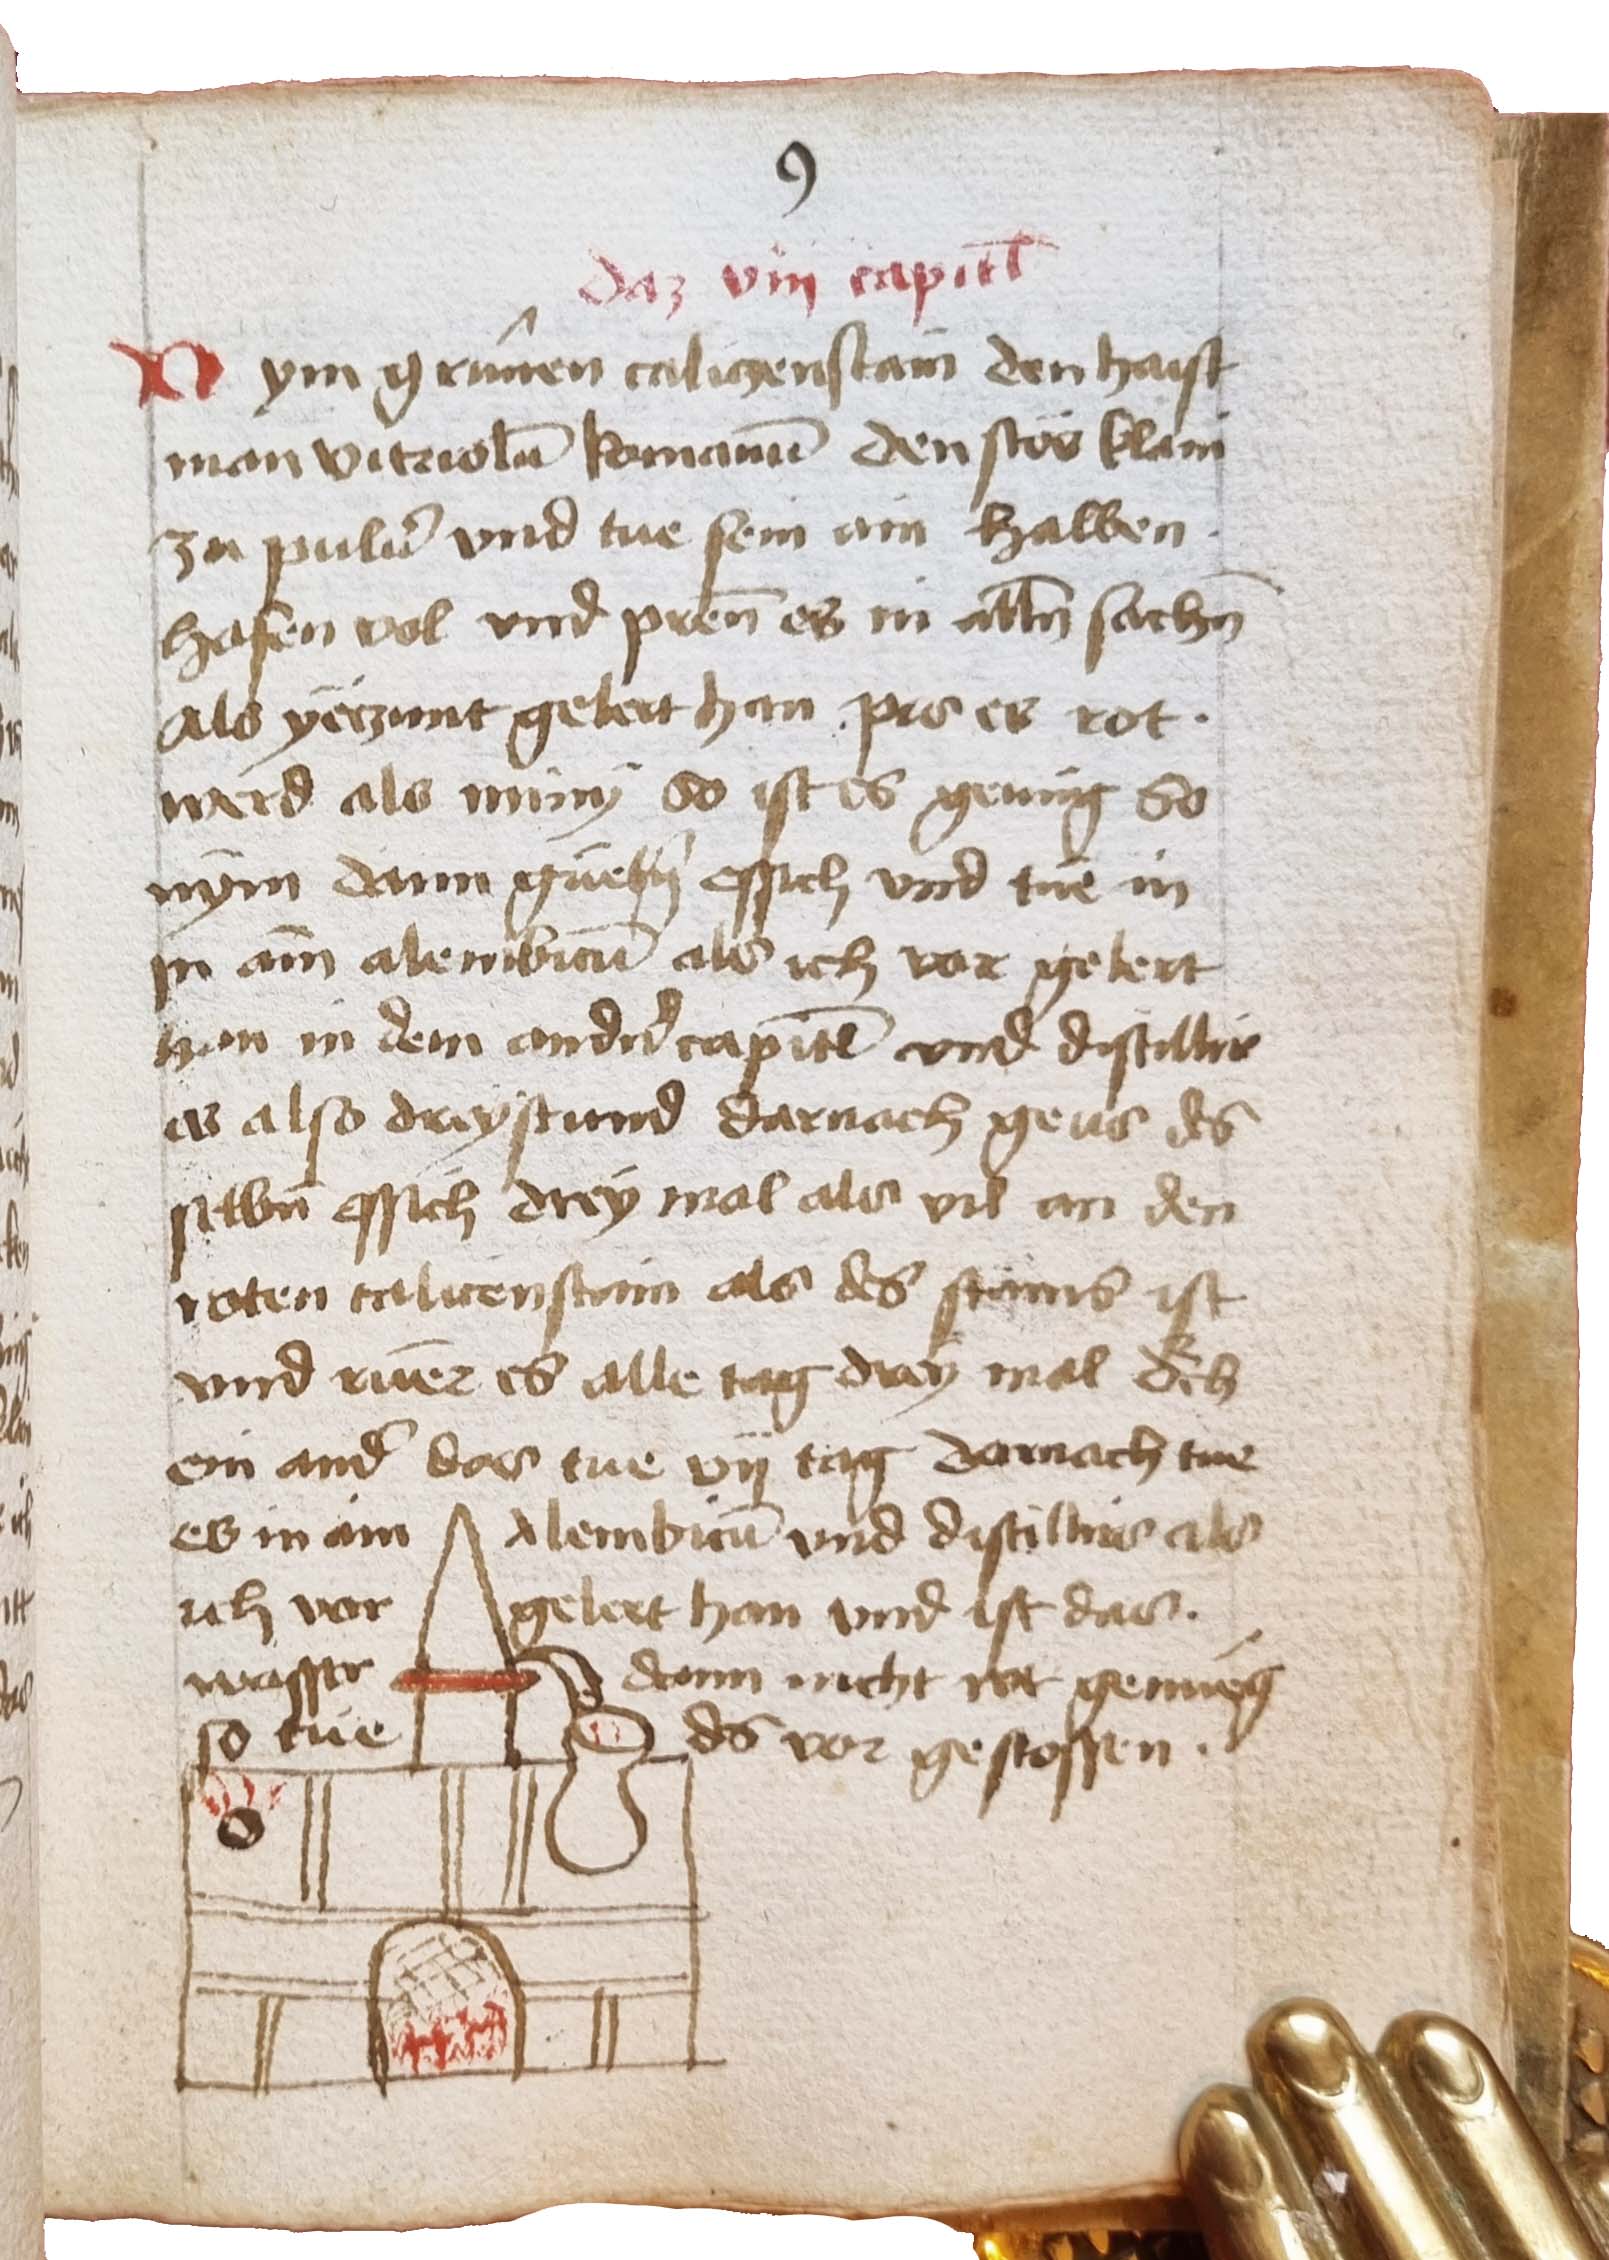 9
daz viij capitl
Nym grünen caliczenstain den haist
man vitriolū Romanū den stös klain
zu puluer und tue sein ain halben
hafen vol und prenn es in alln sachn
als yeczunt gelert han pis es rot
werd als miny So ist es genug So
nym dann guetn essich und tue in
in aim alembicū als ich vor gelert
han in dem andern capitl und distillir
es also dreystund darnach geus des
selbn essich drey mal als vil an den
roten calicenstain als des stains ist
und ruer es alle tag drey mal durch
ein ander das tue vij tag darnach tue
es in aim Alembicū und distillirs als
ich vor gelert han und ist das
wasser dann nicht rot genueg
so tue ds vor gestossen